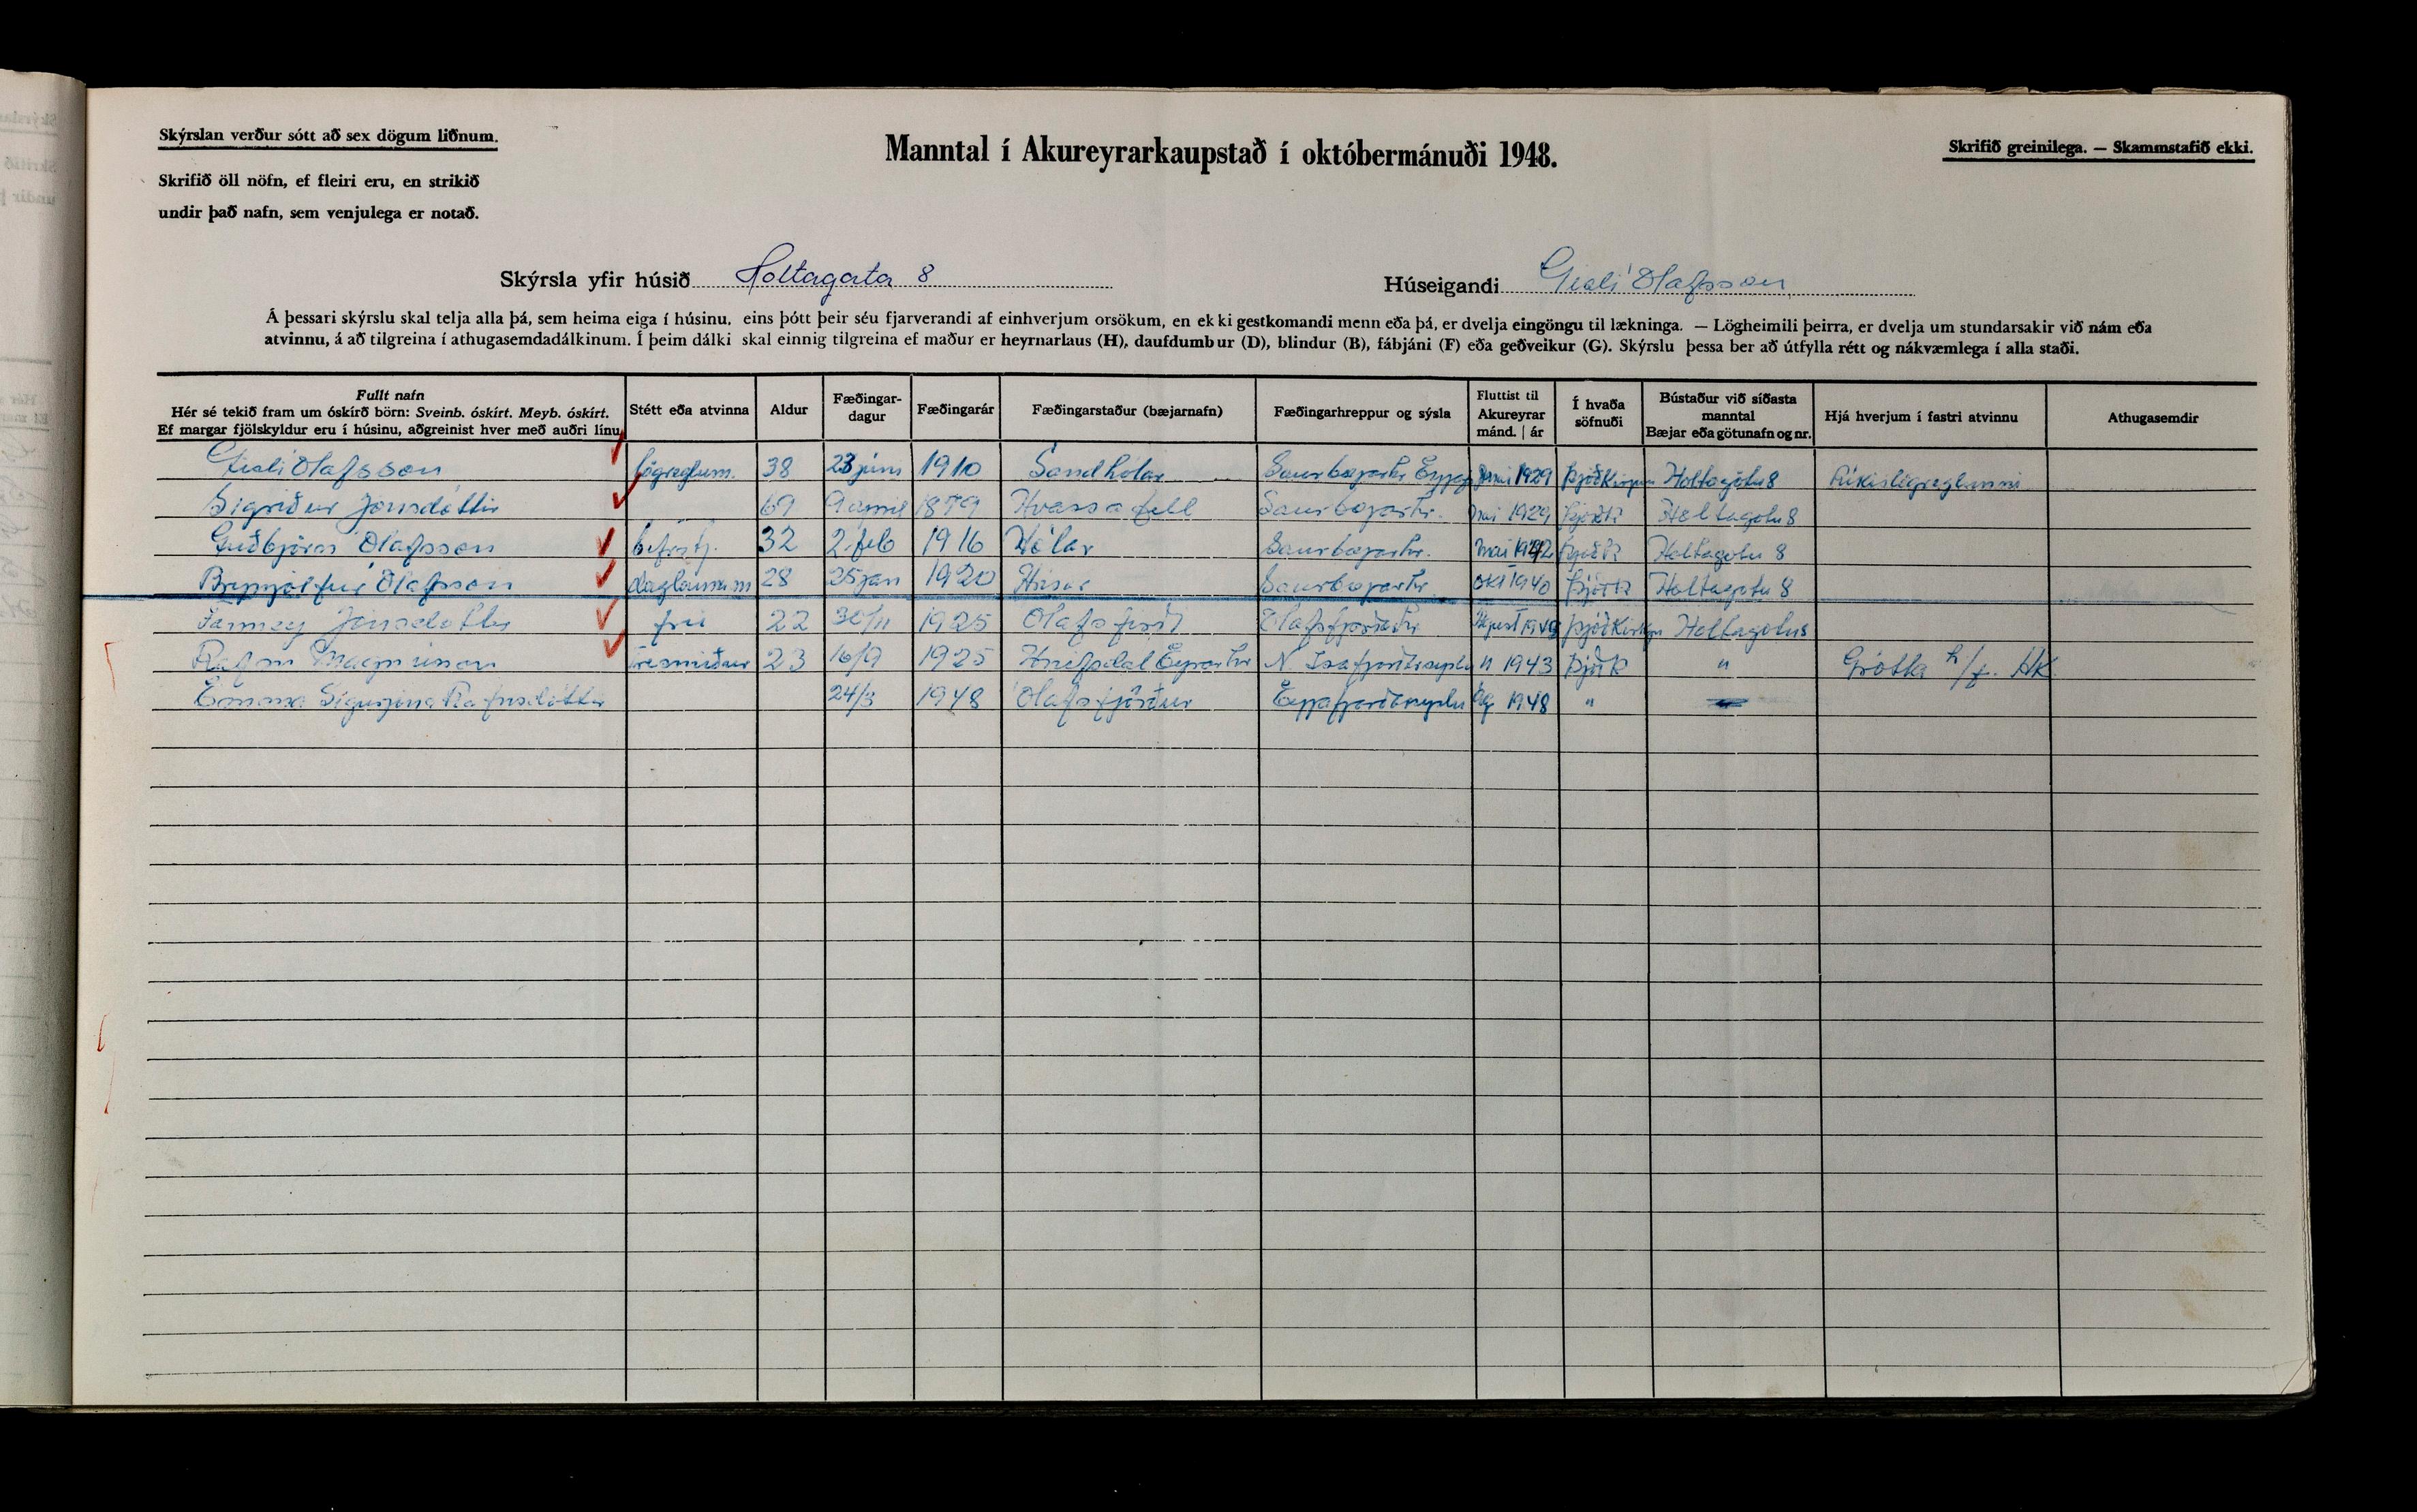 Skýrslan verður sótt að sex dögum liðnum.
Skrifið öll nöfn, ef fleiri eru, en strikið
undir það nafn, sem venjulega er notað.
Manntal í Akureyrarkaupstað í októbermánuði 1948.
Skrifið greinilega. — Skammstafið ekki.
Skýrsla yfir húsið Holtagata 8
Húseigandi Gísli Ólafsson
Á þessari skýrslu skal telja alla þá, sem heima eiga í húsinu, eins þótt þeir séu fjarverandi af einhverjum orsökum, en ekki gestkomandi menn eða þá, er dvelja eingöngu til lækninga. — Lögheimili þeirra, er dvelja um stundarsakir við nám eða
atvinnu, á að tilgreina í athugasemdadálkinum. Í þeim dálki skal einnig tilgreina ef maður er heyrnarlaus (H), daufdumbur (D), blindur (B), fábjáni (F) eða geðveikur (G). Skýrslu þessa ber að útfylla rétt og nákvæmlega í alla staði.
Fullt nafn
Hér sé tekið fram um óskírð börn: Sveinb. óskírt. Meyb. óskírt.
Ef margar fjölskyldur eru í húsinu, aðgreinist hver með auðri línu.
Stétt eða atvinna
Aldur
Fæðingar-
dagur
Fæðingarár
Fæðingarstaður (bæjarnafn)
Fæðingarhreppur og sýsla
Fluttist til
Akureyrar
mánd. | ár
Í hvaða
söfnuði
Bústaður við síðasta
manntal
Bæjar eða götunafn og nr.
Hjá hverjum í fastri atvinnu
Athugasemdir
Gísli Ólafsson lögreglum. 38 23 júni 1910 Sandhólar Saurbæjarhr Eyjafj 1929 Þjóðkirkjun Holtagötu 8 Ríkislögreglunni
Sigríður Jónsdóttir 69 9 apríl 1879 Hvassafell Saurbæjarhr. mai 1929 Þjóðk Holtagötu 8
Guðbjörn Ólafsson bifrstj. 32 2. feb 1916 Hólar Saurbæjarhr. mai 1942 Þjóðk Holtagötu 8
Brynjólfur Ólafsson daglaunam 28 25 jan 1920 Saurbæjarhr okt 1940 Þjóðk Holtagötu 8
Fanney Jónsdóttir frú 22 30/11 1925 Ólafsfirði Ólafsfjarðarhr Þjóðkirkju Holtagötu 8
Rafn Magnússon trésmiður 23 16/9 1925 Hnífsdal Eyrarhr N. Ísafjarðarsýslu " 1943 Þjóðk " Grótta h/f. Ak.
Emma Sigurjóna Rafnsdóttir 24/3 1948 Ólafsfjörður Eyjafjarðarsýslu Ág 1948 "